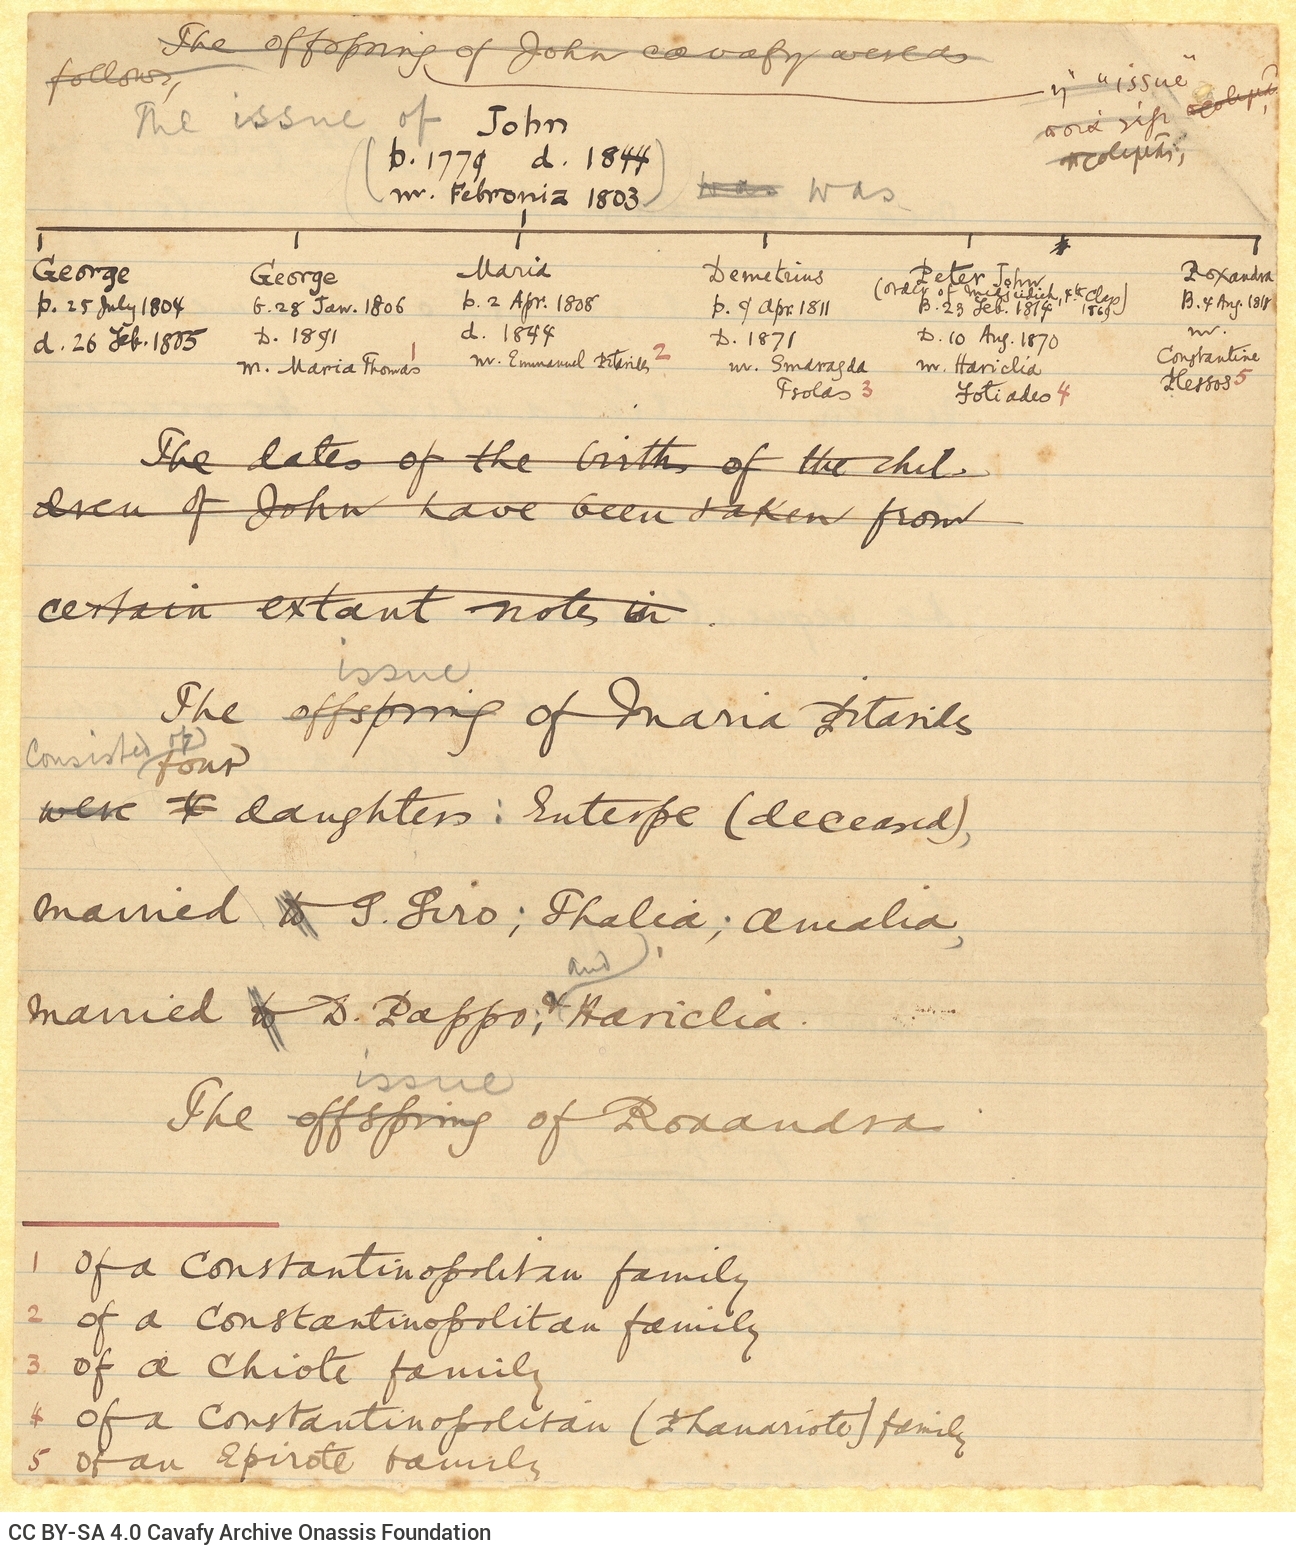 The offspring of John Cavafy were as
follows,
ή "issue"
The issue of John
(b. 1779 d. 1844
m. Febronia 1803) was was
George George Maria Demetrius Peter John Roxandra
(Order of Medjidieh, 4th Class 1869)
b. 25 July 1804 b. 28 Jan. 1806 b. 2 Apr. 1808 b. 9 Apr. 1811 B. 23 Feb. 1814 B. 4 Aug. 1818
d. 26 Feb. 1805 D. 1891 d. 1844 D. 1871 D. 10 Aug. 1870 m.
m. Maria Thomas 1 m. Emmanuel Pitarides 2 m. Smaragda m. Hariclia Constantine
Tsolas 3 Fotiades 4 Plessos 5
The dates of the births of the chil-
dren of John have been taken from
certain extant notes in
issue
The offspring of Maria Pitarides
consisted of four
were daughters: Euterpe (deceased),
married to G. Siro; Thalia; Amalia,
and
married to D. Pappo; & Hariclia.
issue
The offspring of Roxandra
1 Of a Constantinopolitan family
2 of a Constantinopolitan family
3 of a Chiote family
4 of a Constantinopolitan (Phanariote) family
5 of an Epirote family
CC BY-SA 4.0 Cavafy Archive Onassis Foundation